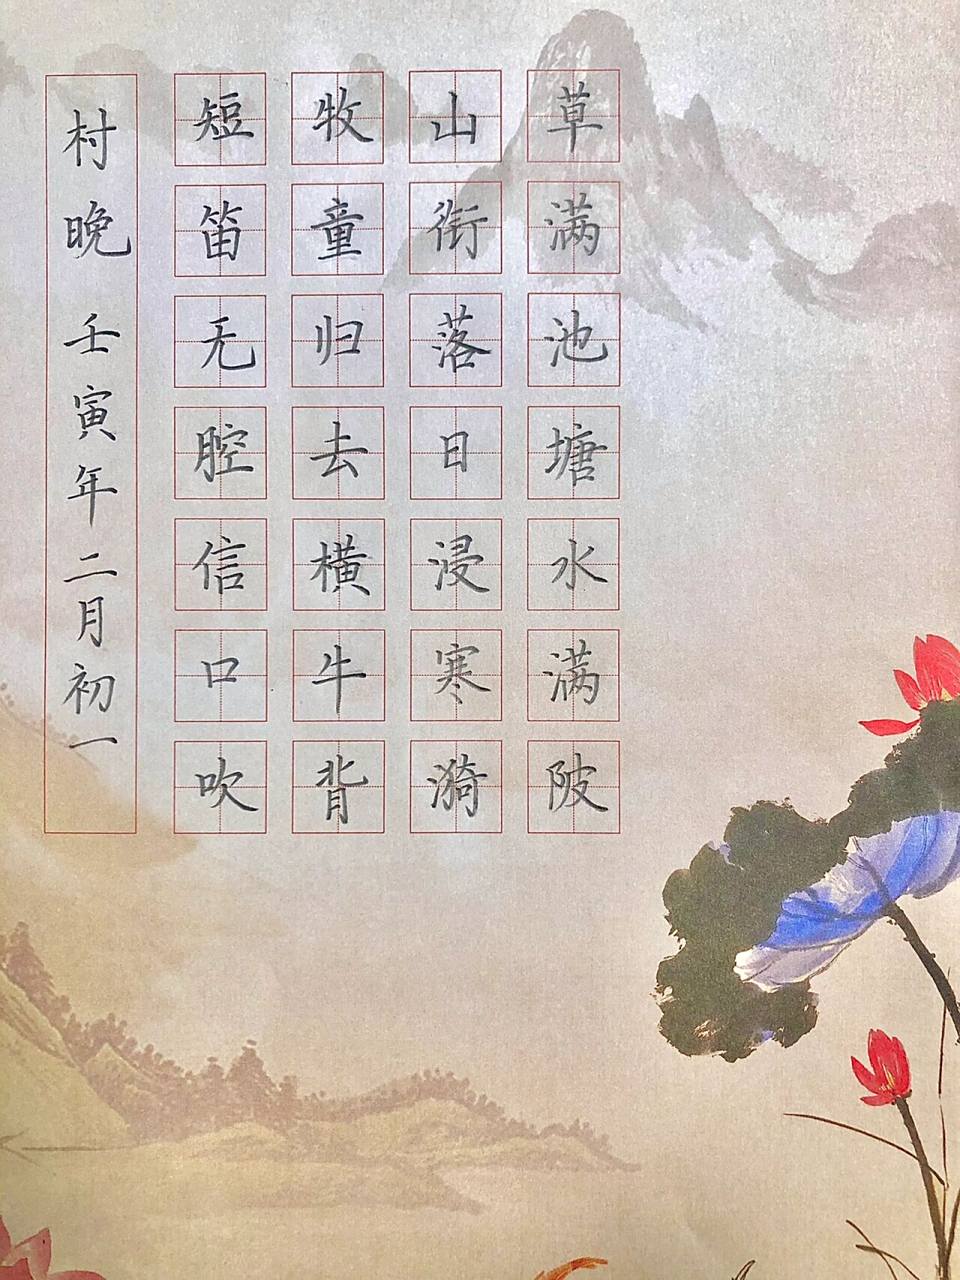 草满池塘水满陂
山衔落日浸寒漪
牧童归去横牛背
短笛无腔信口吹
村晚 壬寅年二月初一